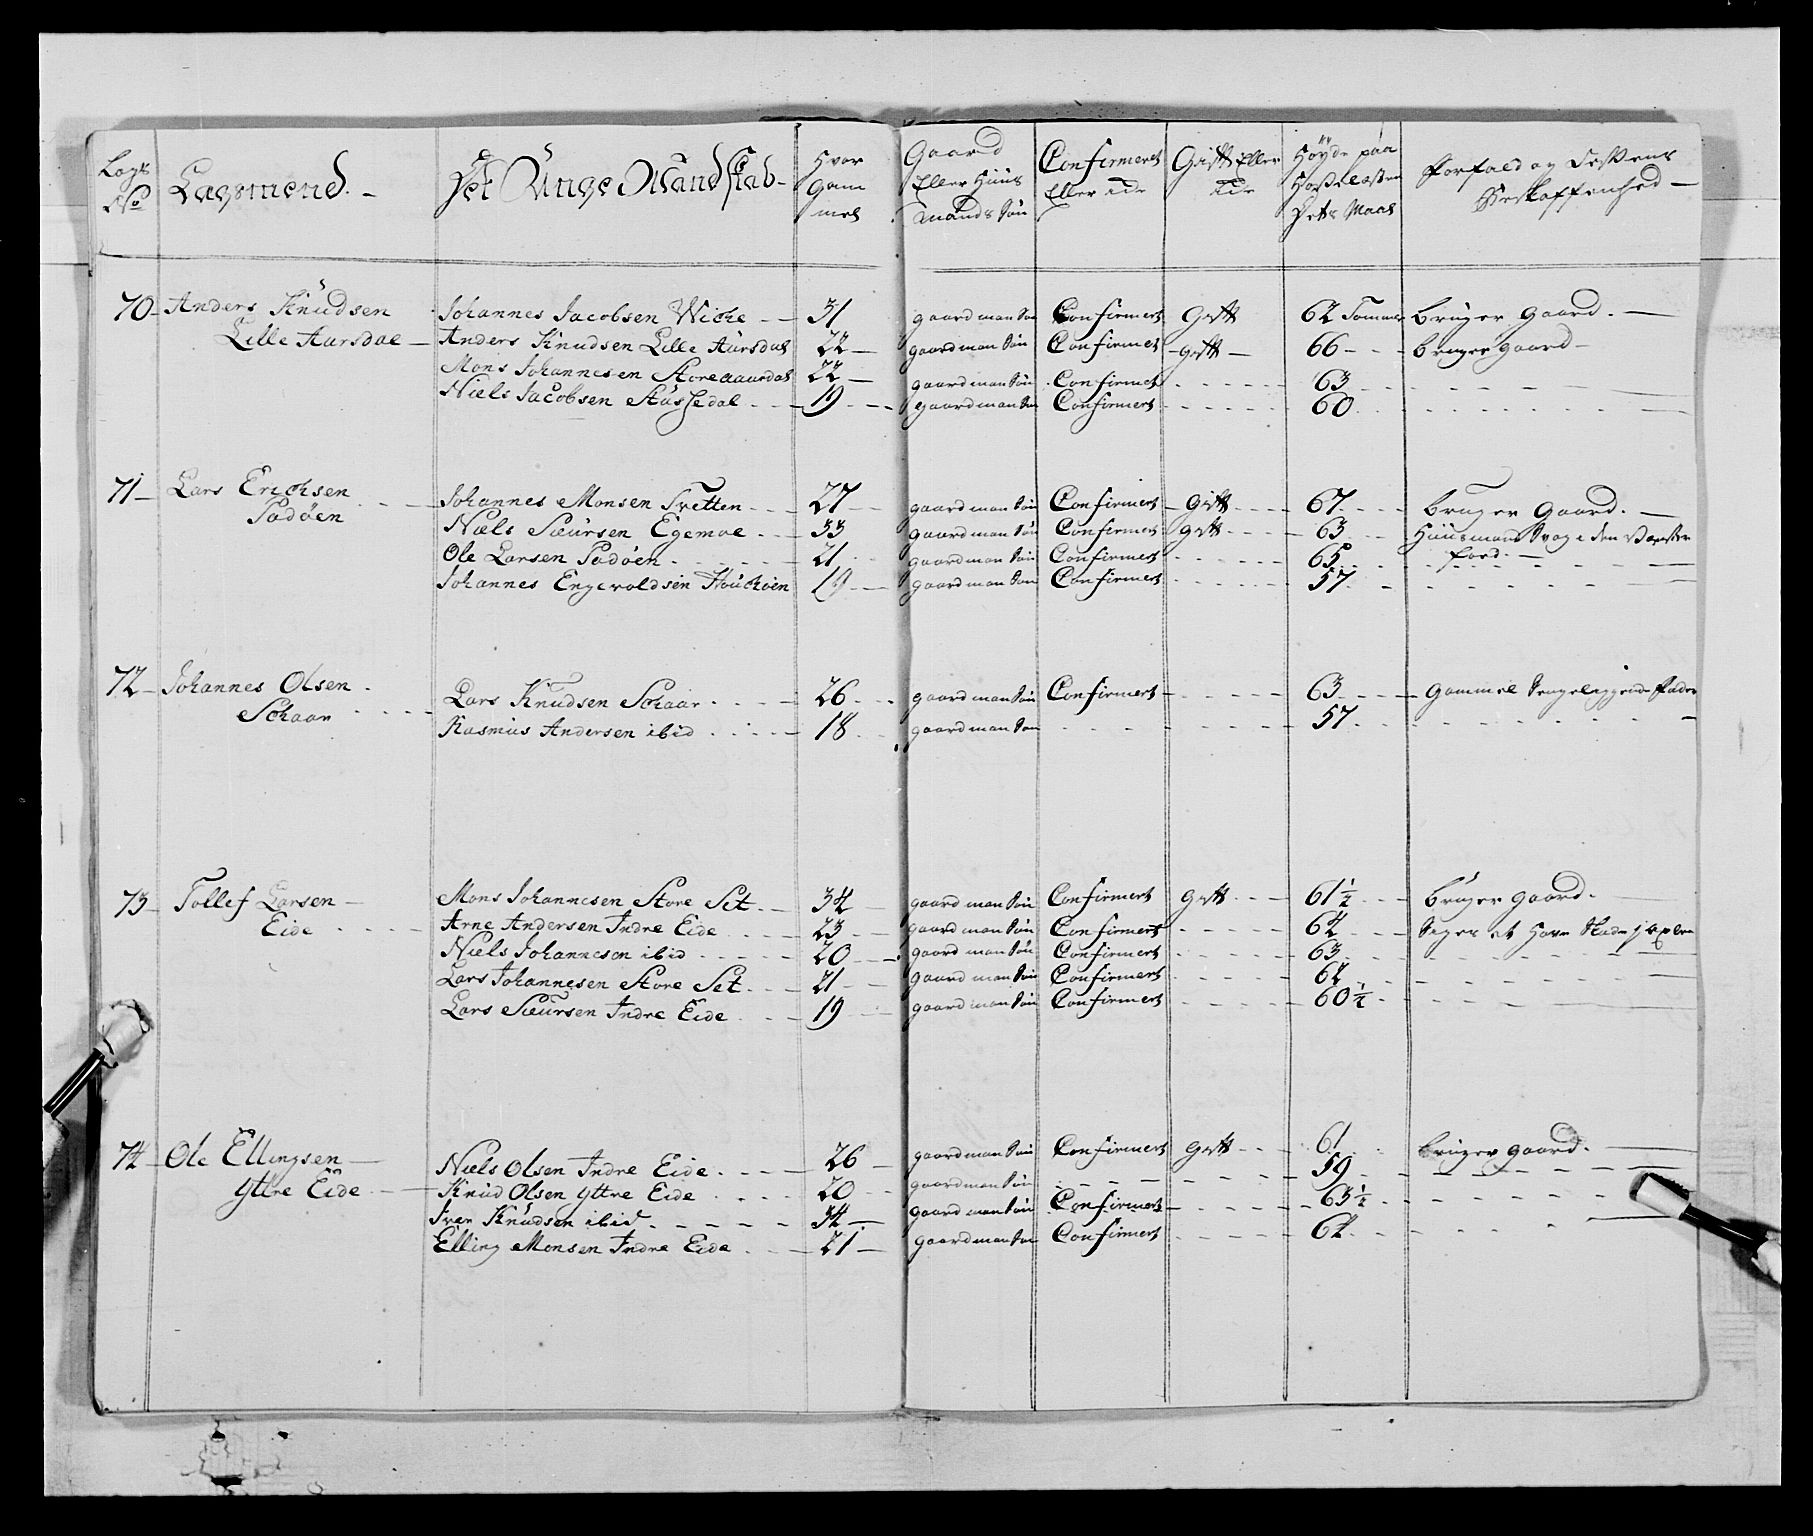 Lægs No | Lægsmend. | Det Unge Mandskab | Hvor Gammel | Gaard Eller Huusmands Søn | Confirmeret Eller ide | Gift Eller ide | Høyde paa Hoselæsten Dets Maal | Forfald og Dessens Beskaffenhed
70 Anders Knudsen | Johannes Jacobsen Wiche | 31 | gaardman Søn | Confirmert | Gift | 62 Tommer | bruger Gaard.
Lille Aarsdal | Anders Knudsen Lille Aarsdal | 22 | gaardman Søn | Confirmet | gift | 66 | bruger gaard
Mons Johannesen Store aaardal | 22 | gaardman Søn | Confirmet | 63
Niels Jacobsen Aussedal | 19 | gaardman Søn | Confirmert | 60
71 Lars Erichsen | Johannes Monsen Tvetten | 27 | gaardman Søn | Confirmert | Gift | 67 | bruger Gaard.
Padøen | Niels Sieursen Egemoe | 33 | gaardman Søn | Confirmert | gift | 63 | Huusmand Svag i den
Ole Larsen Padøen | 21 | gaardman Søn | Confirmert | 65
Johannes Engevoldsen | 19 | gaardman Søn | Confirmert | 57
72 Johannes Olsen | Lars Knudsen Schaar | 26 | gaardman Søn | Confirmert | 63 | Gammel Sengeliggende Fader
Schaar | Rasmus Andersen ibid | 18 | gaardman Søn | 57
73 Tollef Larsen | Mons Johannesen Store Set | 34 | gaardman Søn | Confirmert | Gift | 61½ | bruger gaard.
Eide | Arne Andersen Indre Eide | 23 | gaardman Søn | Confirmert | 62 | Siges at have Skade i
Niels Johannesen ibid | 20 | gaardman Søn | Confirmert | 63
Lars Johannesen Store Set | 21 | gaardman Søn | Confirmert | 62
Lars Sieursen Indre Eide | 19 | gaardman Søn | Confirmert | 60½
74 Ole Ellingsen | Niels Olsen Indre Eide | 26 | gaardman Søn | Confirmert | Gift | 61 | bruger gaard.
Yttre Eide | Knud Olsen Yttre Eide | 20 | gaardman Søn | 59
Iver Knudsen ibid | 34 | gaardman Søn | Confirmert | 63½
Elling Monsen Indre Eide | 21 | gaardman Søn | Confirmert | 62